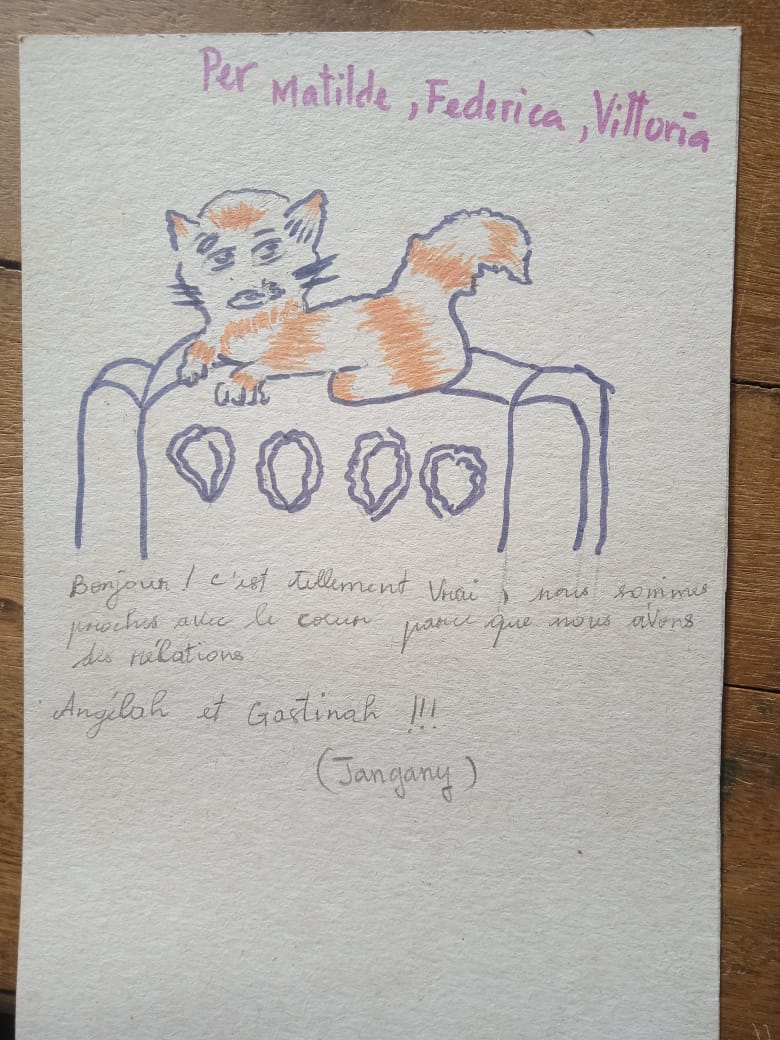 Per Matilde, Federica, Vittoria
Bonjour ! c'est tellement vrai, nous sommes
proches avec le coeur parce que nous avons
des rélations
Angélah et Gastinah !!!
(Jangany)